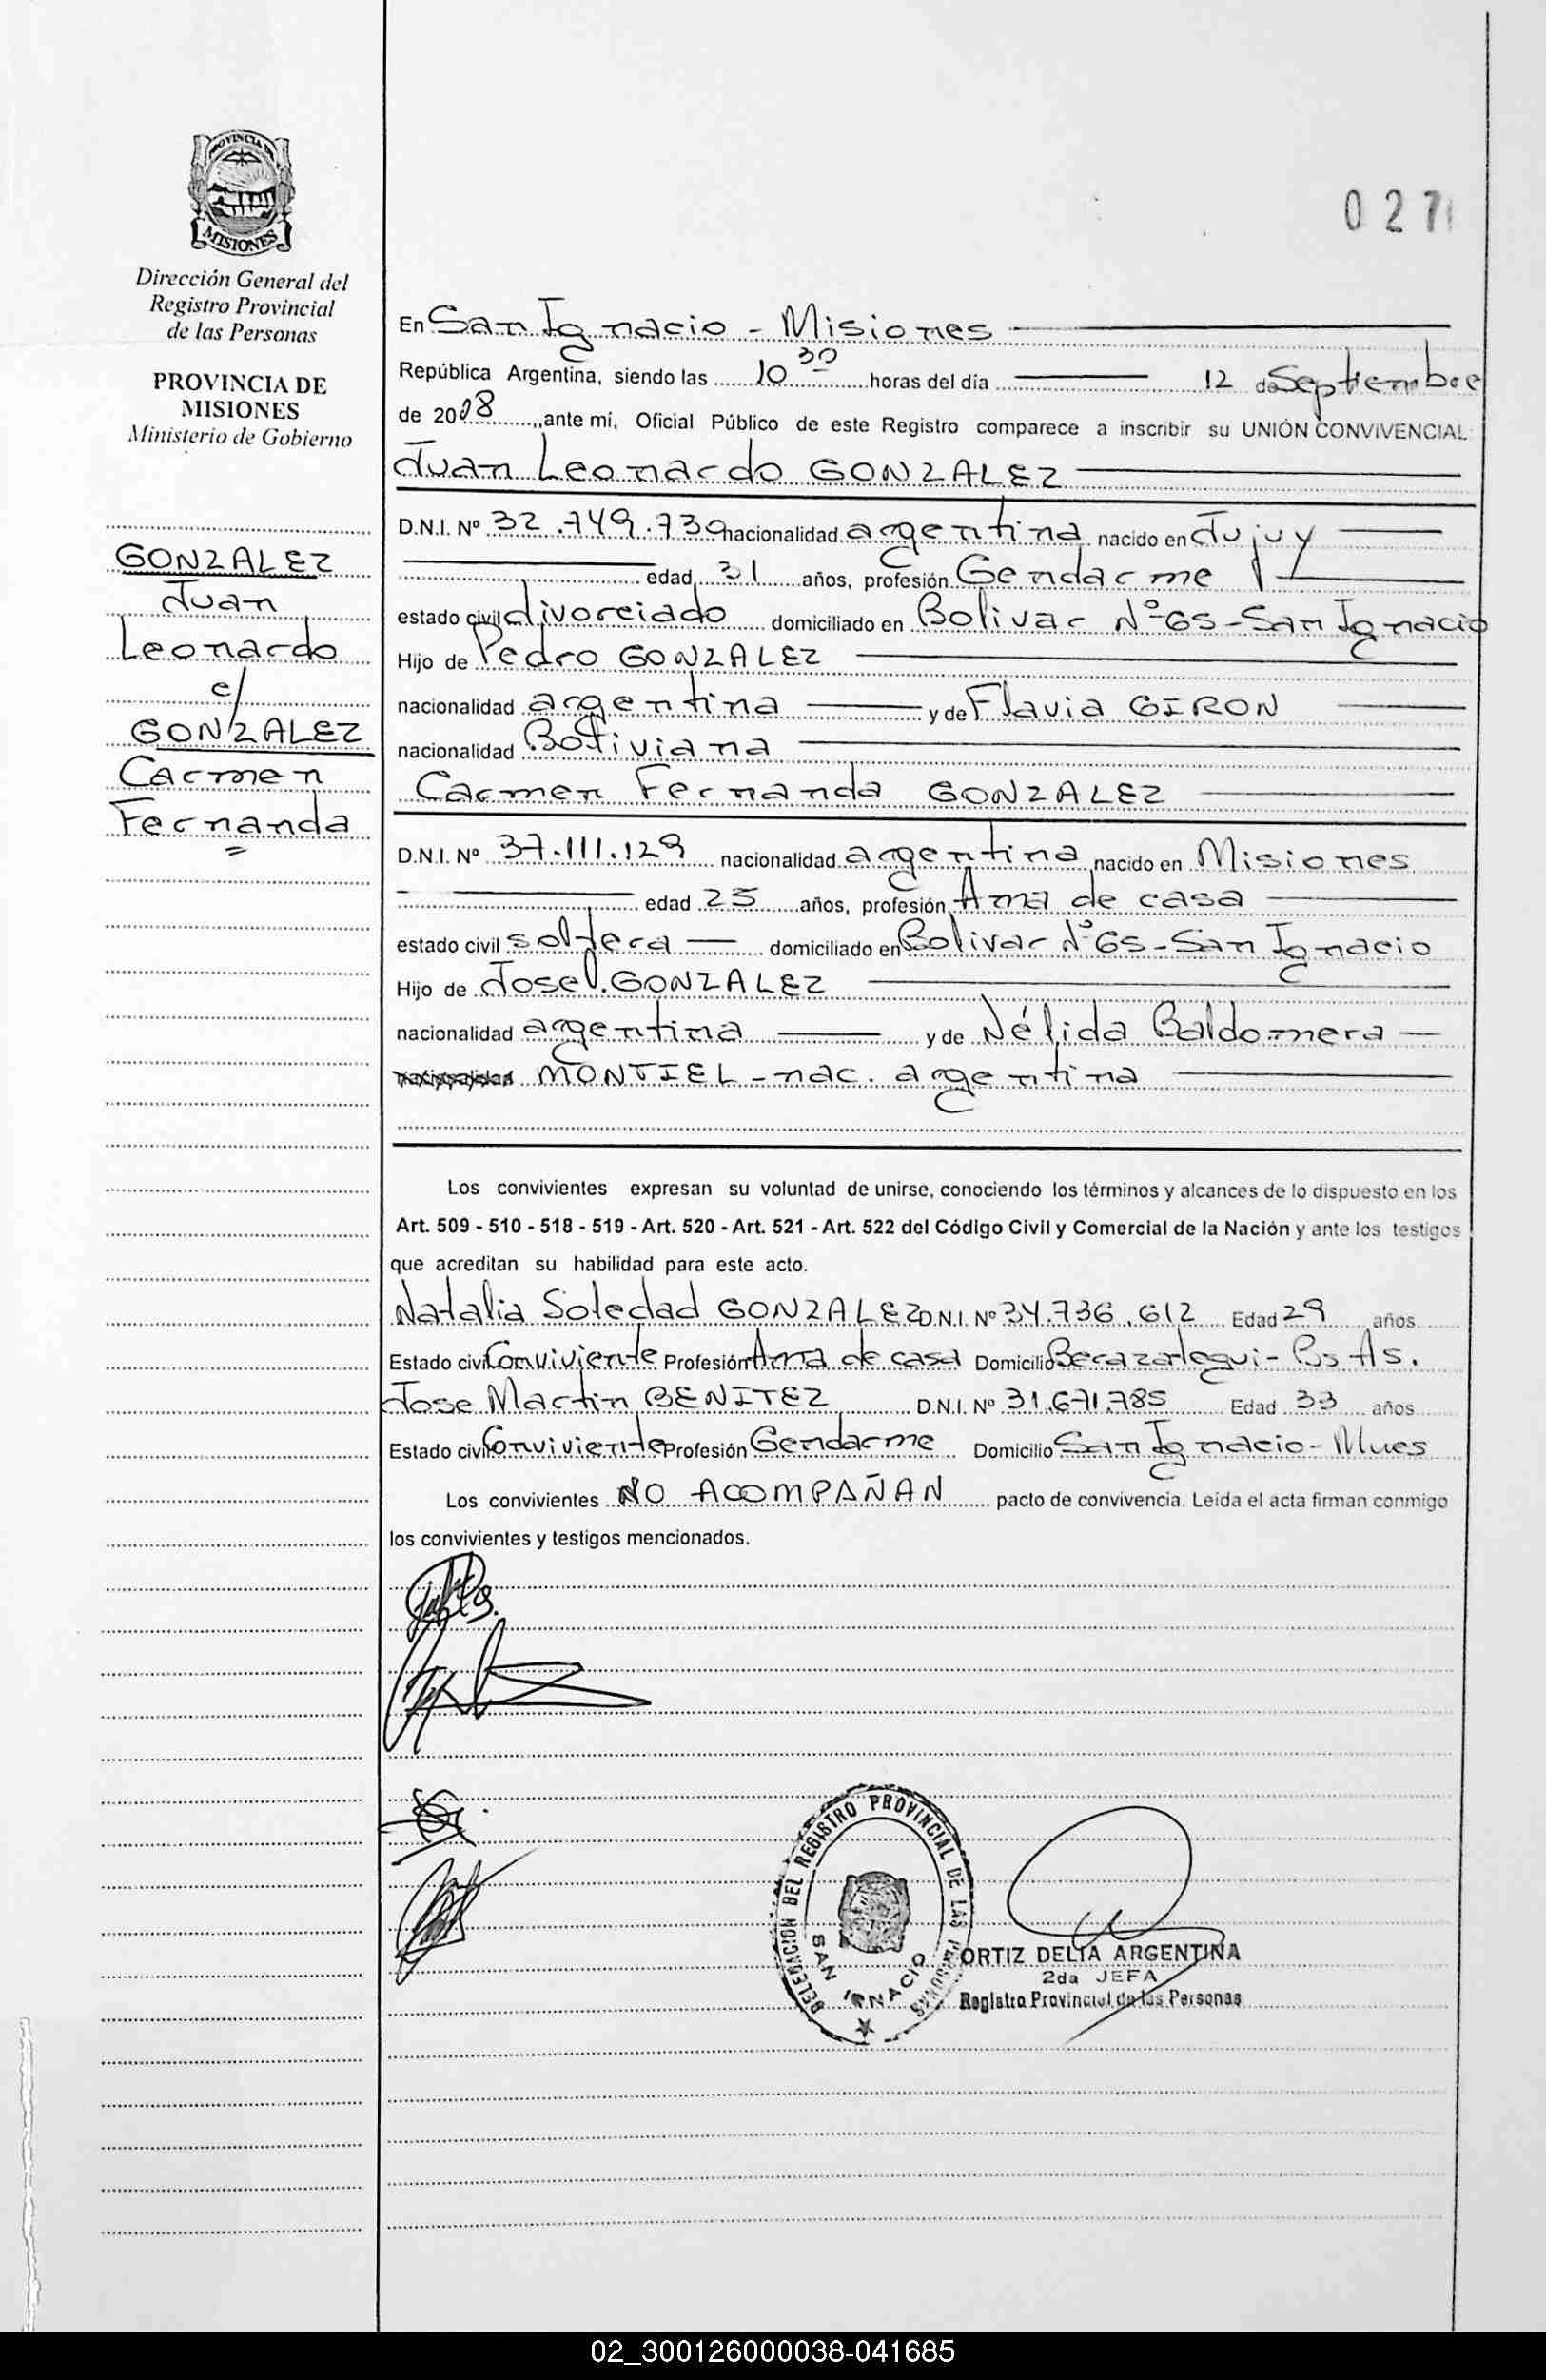 PROVINCIA DE
MISIONES
Dirección General del
Registro Provincial
de las Personas
PROVINCIA DE
MISIONES
Ministerio de Gobierno
GONZALEZ
Juan
Leonardo
c/
GONZALEZ
Carmen
Fernanda
027
En San Ignacio - Misiones
República Argentina, siendo las 10 30 horas del día 12 de Septiembre
de 2018, ante mí, Oficial Público de este Registro comparece a inscribir su UNIÓN CONVIVENCIAL
Juan Leonardo GONZALEZ
D.N.I. Nº 32.749.739 nacionalidad argentina nacido en Jujuy
edad 31 años, profesión Gendarme
estado civil divorciado domiciliado en Bolivar Nº 65 - San Ignacio
Hijo de Pedro GONZALEZ
nacionalidad argentina y de Flavia GIRON
nacionalidad Boliviana
Carmen Fernanda GONZALEZ
D.N.I. Nº 37.111.129 nacionalidad argentina nacido en Misiones
edad 25 años, profesión Ama de casa
estado civil soltera domiciliado en Bolivar Nº 65 - San Ignacio
Hijo de Jose V. GONZALEZ
nacionalidad argentina y de Nélida Baldomera
nacionalidad MONTIEL - nac. argentina
Los convivientes expresan su voluntad de unirse, conociendo los términos y alcances de lo dispuesto en los
Art. 509 - 510 - 518 - 519 - Art. 520 - Art. 521 - Art. 522 del Código Civil y Comercial de la Nación y ante los testigos
que acreditan su habilidad para este acto.
Natalia Soledad GONZALEZ D.N.I. Nº 34.736.612 Edad 29 años
Estado civil Conviviente Profesión Ama de casa Domicilio Berazategui - Bs As.
Jose Martin BENITEZ D.N.I. Nº 31.671.785 Edad 33 años
Estado civil Conviviente Profesión Gendarme Domicilio San Ignacio - Mnes
Los convivientes NO ACOMPAÑAN pacto de convivencia. Leída el acta firman conmigo
los convivientes y testigos mencionados.
DELEGACION DEL REGISTRO PROVINCIAL DE LAS PERSONAS
SAN IGNACIO
ORTIZ DELIA ARGENTINA
2da JEFA
Registro Provincial de las Personas
02_300126000038-041685